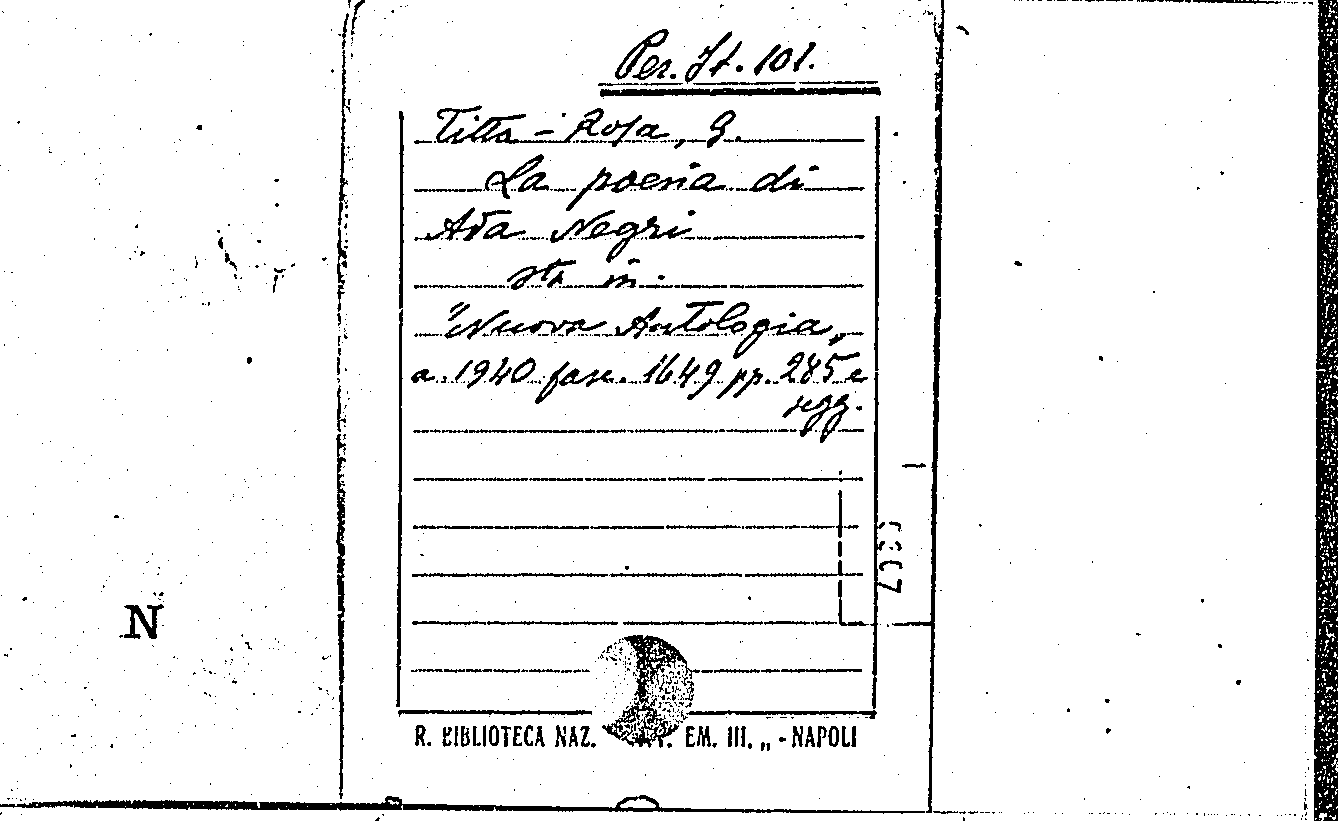 Per. It. 101.
Titta-Rosa, G.
La poesia di
Ada Negri
sta in.
"Nuova Antologia„
a. 1940 fasc. 1649 pp. 285 e
segg.
N
R. BIBLIOTECA NAZ. EM. III. „ - NAPOLI